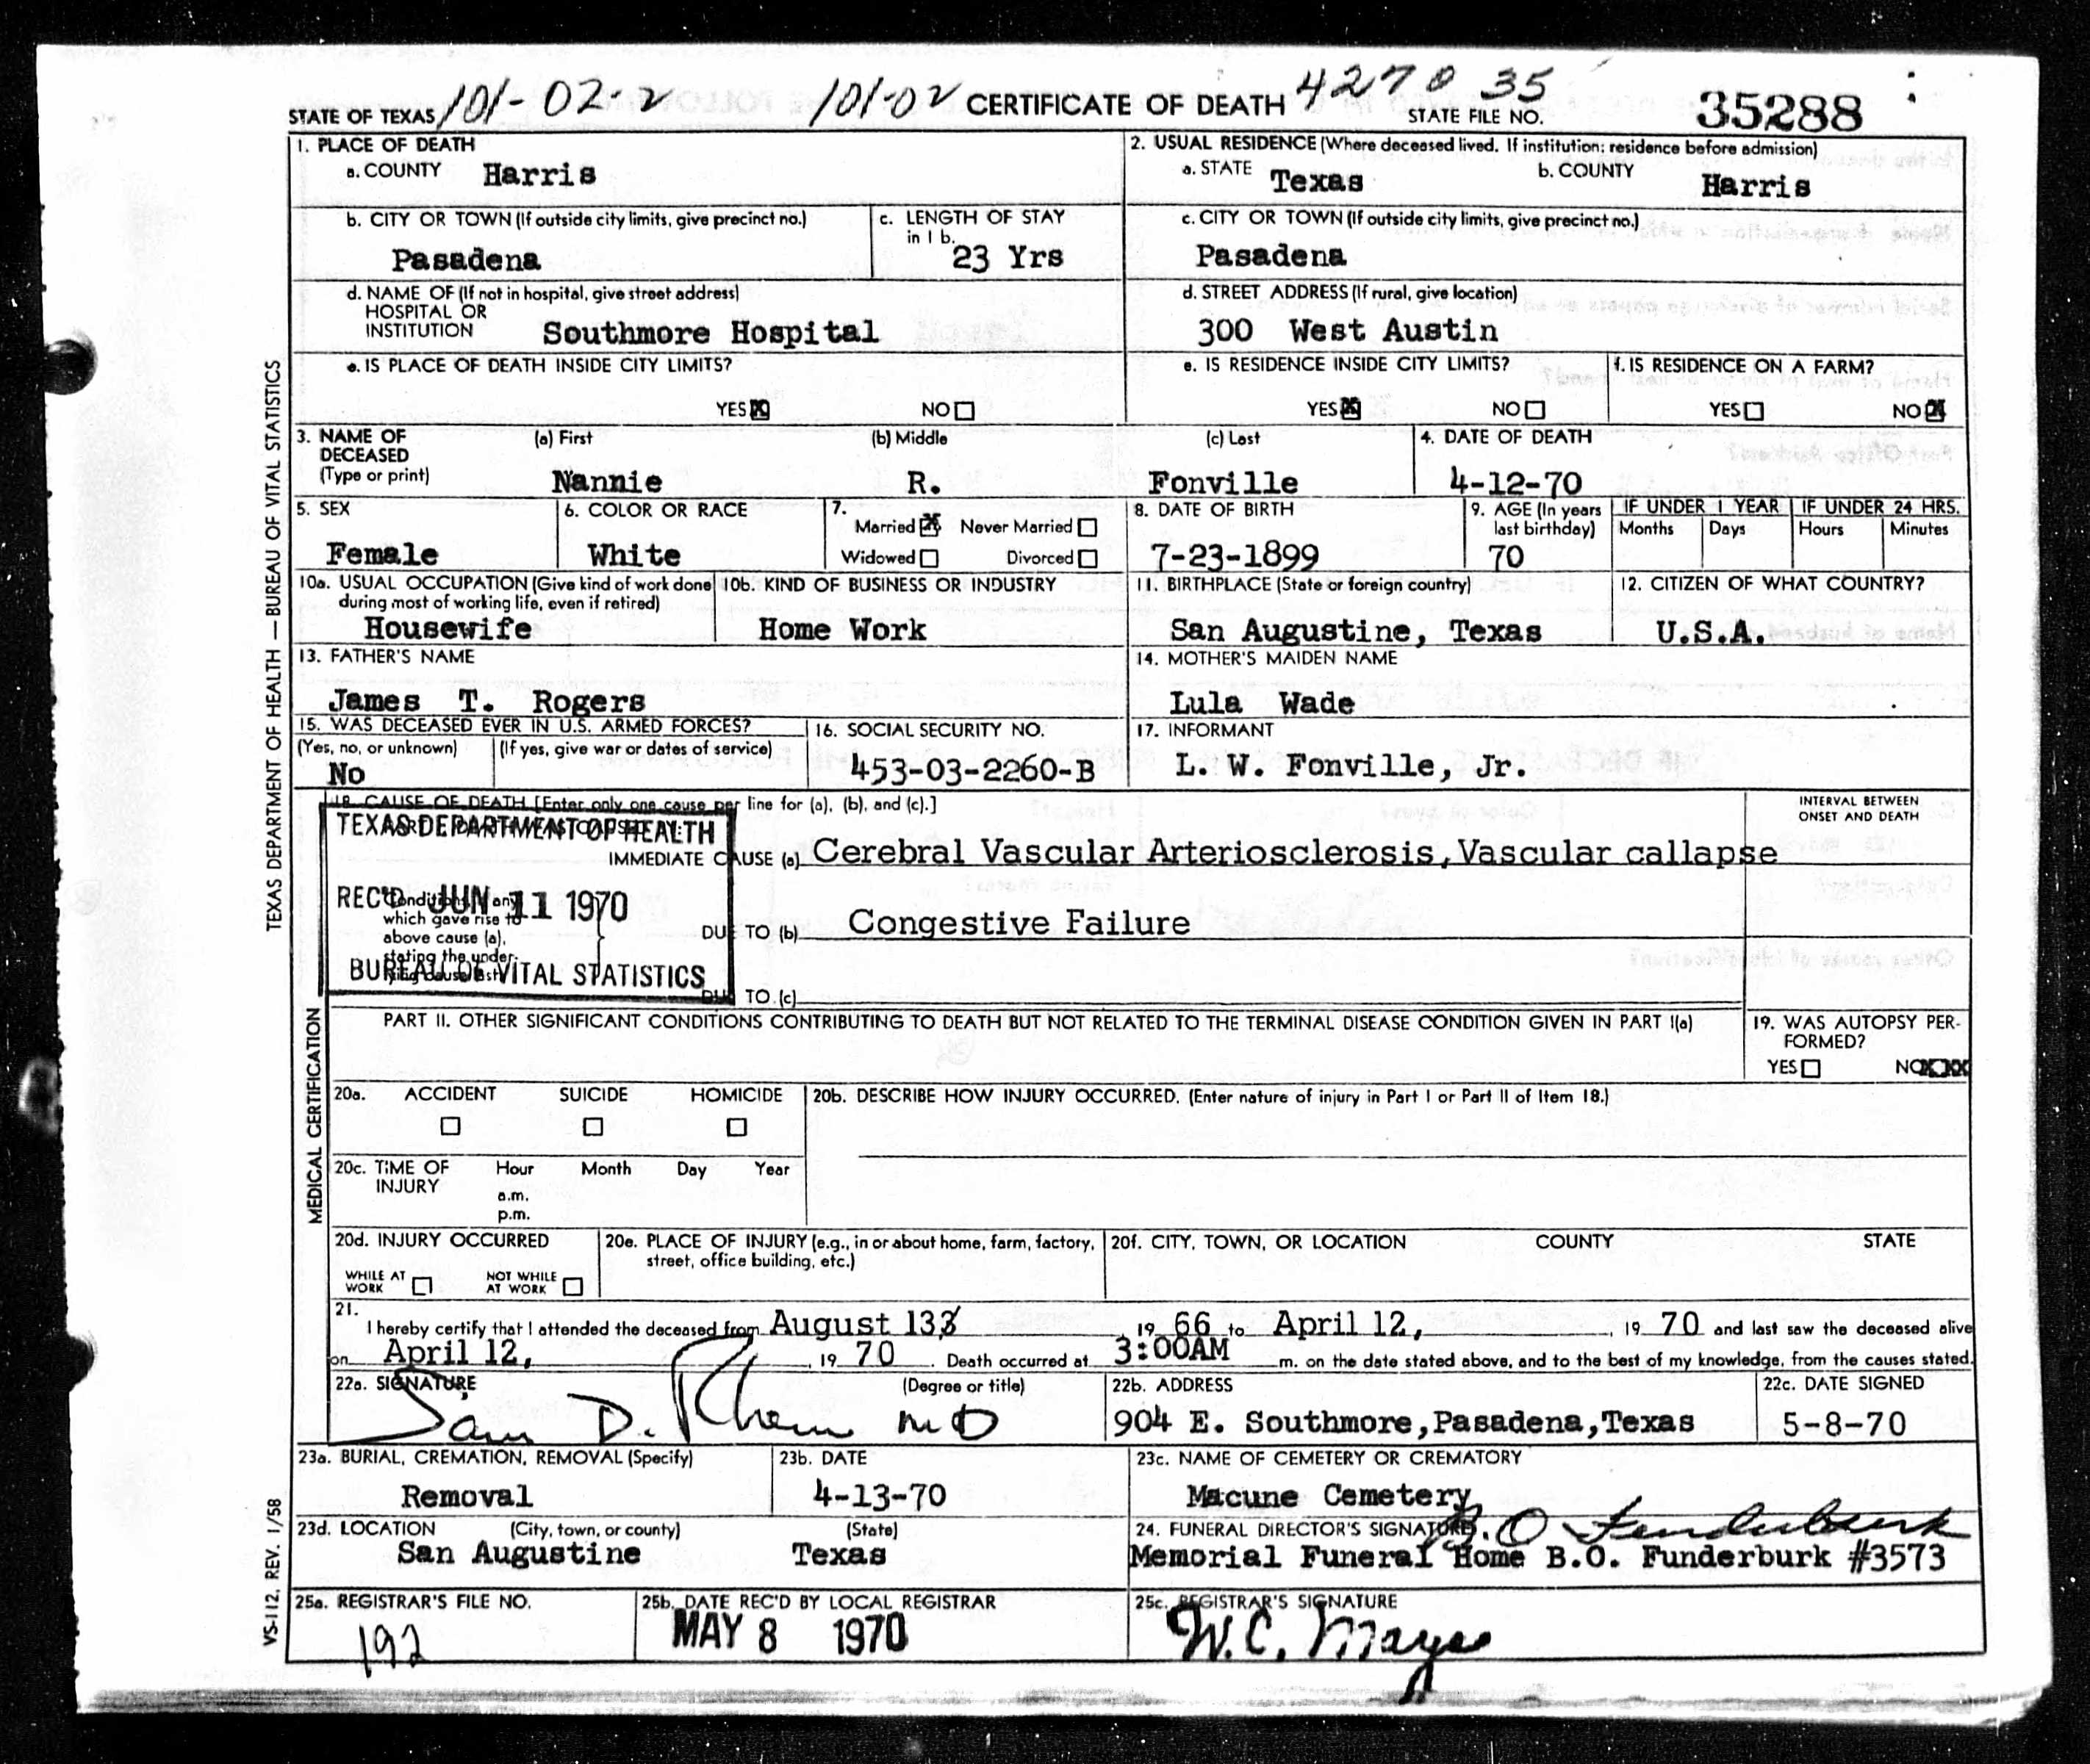 STATE OF TEXAS 101-02-2 101-02 CERTIFICATE OF DEATH 4270 35 STATE FILE NO. 35288
1. PLACE OF DEATH
a. COUNTY Harris
2. USUAL RESIDENCE (Where deceased lived. If institution: residence before admission)
a. STATE Texas b. COUNTY Harris
b. CITY OR TOWN (If outside city limits, give precinct no.)
Pasadena
c. LENGTH OF STAY in 1 b.
23 Yrs
c. CITY OR TOWN (If outside city limits, give precinct no.)
Pasadena
d. NAME OF (If not in hospital, give street address)
HOSPITAL OR
INSTITUTION Southmore Hospital
d. STREET ADDRESS (If rural, give location)
300 West Austin
e. IS PLACE OF DEATH INSIDE CITY LIMITS?
YES X NO
e. IS RESIDENCE INSIDE CITY LIMITS?
YES X NO
f. IS RESIDENCE ON A FARM?
YES NO X
3. NAME OF DECEASED (Type or print)
(a) First (b) Middle (c) Last
Nannie R. Fonville
4. DATE OF DEATH
4-12-70
5. SEX
Female
6. COLOR OR RACE
White
7. Married X Never Married
Widowed Divorced
8. DATE OF BIRTH
7-23-1899
9. AGE (In years last birthday)
70
IF UNDER 1 YEAR
Months Days
IF UNDER 24 HRS.
Hours Minutes
10a. USUAL OCCUPATION (Give kind of work done
during most of working life, even if retired)
Housewife
10b. KIND OF BUSINESS OR INDUSTRY
Home Work
11. BIRTHPLACE (State or foreign country)
San Augustine, Texas
12. CITIZEN OF WHAT COUNTRY?
U.S.A.
13. FATHER'S NAME
James T. Rogers
14. MOTHER'S MAIDEN NAME
Lula Wade
15. WAS DECEASED EVER IN U.S. ARMED FORCES?
(Yes, no, or unknown) (If yes, give war or dates of service)
No
16. SOCIAL SECURITY NO.
453-03-2260-B
17. INFORMANT
L. W. Fonville, Jr.
18. CAUSE OF DEATH [Enter only one cause per line for (a), (b), and (c).]
INTERVAL BETWEEN
ONSET AND DEATH
TEXAS DEPARTMENT OF HEALTH
REC'D JUN 11 1970
BUREAU OF VITAL STATISTICS
IMMEDIATE CAUSE (a) Cerebral Vascular Arteriosclerosis, Vascular callapse
Conditions, if any
which gave rise to
above cause (a),
stating the under-
lying cause last.
DUE TO (b) Congestive Failure
DUE TO (c)
PART II. OTHER SIGNIFICANT CONDITIONS CONTRIBUTING TO DEATH BUT NOT RELATED TO THE TERMINAL DISEASE CONDITION GIVEN IN PART I(a)
19. WAS AUTOPSY PER-
FORMED?
YES NO XXX
20a. ACCIDENT SUICIDE HOMICIDE
20b. DESCRIBE HOW INJURY OCCURRED. (Enter nature of injury in Part I or Part II of Item 18.)
20c. TIME OF INJURY
Hour Month Day Year
a.m.
p.m.
20d. INJURY OCCURRED
WHILE AT WORK NOT WHILE AT WORK
20e. PLACE OF INJURY (e.g., in or about home, farm, factory,
street, office building, etc.)
20f. CITY, TOWN, OR LOCATION COUNTY STATE
21.
I hereby certify that I attended the deceased from August 13, 19 66 to April 12, 19 70 and last saw the deceased alive
on April 12, 19 70. Death occurred at 3:00AM m. on the date stated above, and to the best of my knowledge, from the causes stated.
22a. SIGNATURE (Degree or title)
Sam D. MD
22b. ADDRESS
904 E. Southmore, Pasadena, Texas
22c. DATE SIGNED
5-8-70
23a. BURIAL, CREMATION, REMOVAL (Specify)
Removal
23b. DATE
4-13-70
23c. NAME OF CEMETERY OR CREMATORY
Macune Cemetery
23d. LOCATION (City, town, or county) (State)
San Augustine Texas
24. FUNERAL DIRECTOR'S SIGNATURE B. O Funderburk
Memorial Funeral Home B.O. Funderburk #3573
25a. REGISTRAR'S FILE NO.
192
25b. DATE REC'D BY LOCAL REGISTRAR
MAY 8 1970
25c. REGISTRAR'S SIGNATURE
W.C. Mayes
TEXAS DEPARTMENT OF HEALTH — BUREAU OF VITAL STATISTICS
MEDICAL CERTIFICATION
VS-112, REV. 1/58